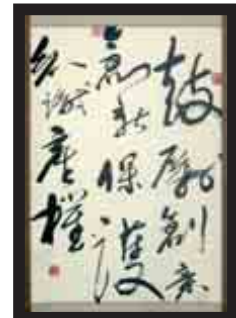 鼓勵創意
新保護
知識產權